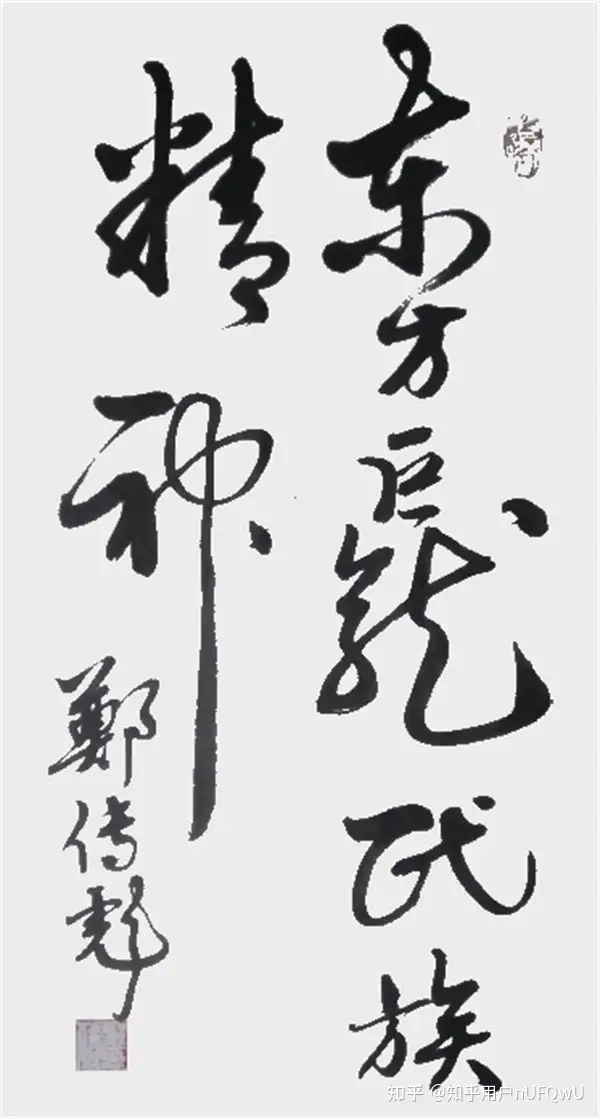 東方巨龍民族
精神
鄭传彪
知乎 @知乎用户nUFQwU